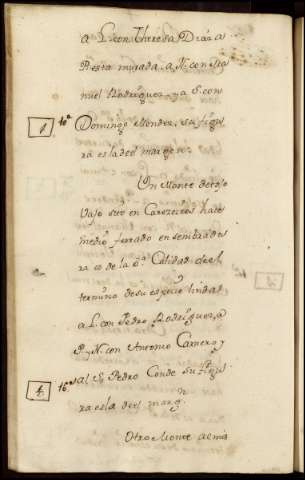 a L. con Theresa Diaz a
P. esta murada, a N. con Ma
nuel Rodriguez, y a S. con
10.a Domingo Mendez, su figu
ra es la del margen.
Un Monte de tojo
vajo sito en Carozeiros hace
medio ferrado en sembradu
ra es de la 2.a Calidad de el
termino de su especie linda
a L. con Pedro Rodriguez, a
P. y N. con Antonio Carnero y
16.a al S. Pedro Conde su figu
ra es la de el marg.n
Otro Monte al mis